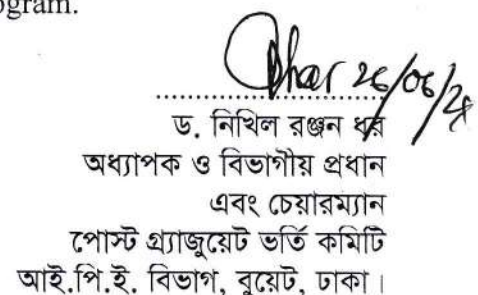 ogram.
Dhar 26/06/25
ড. নিখিল রঞ্জন ধর
অধ্যাপক ও বিভাগীয় প্রধান
এবং চেয়ারম্যান
পোস্ট গ্র্যাজুয়েট ভর্তি কমিটি
আই.পি.ই. বিভাগ, বুয়েট, ঢাকা।